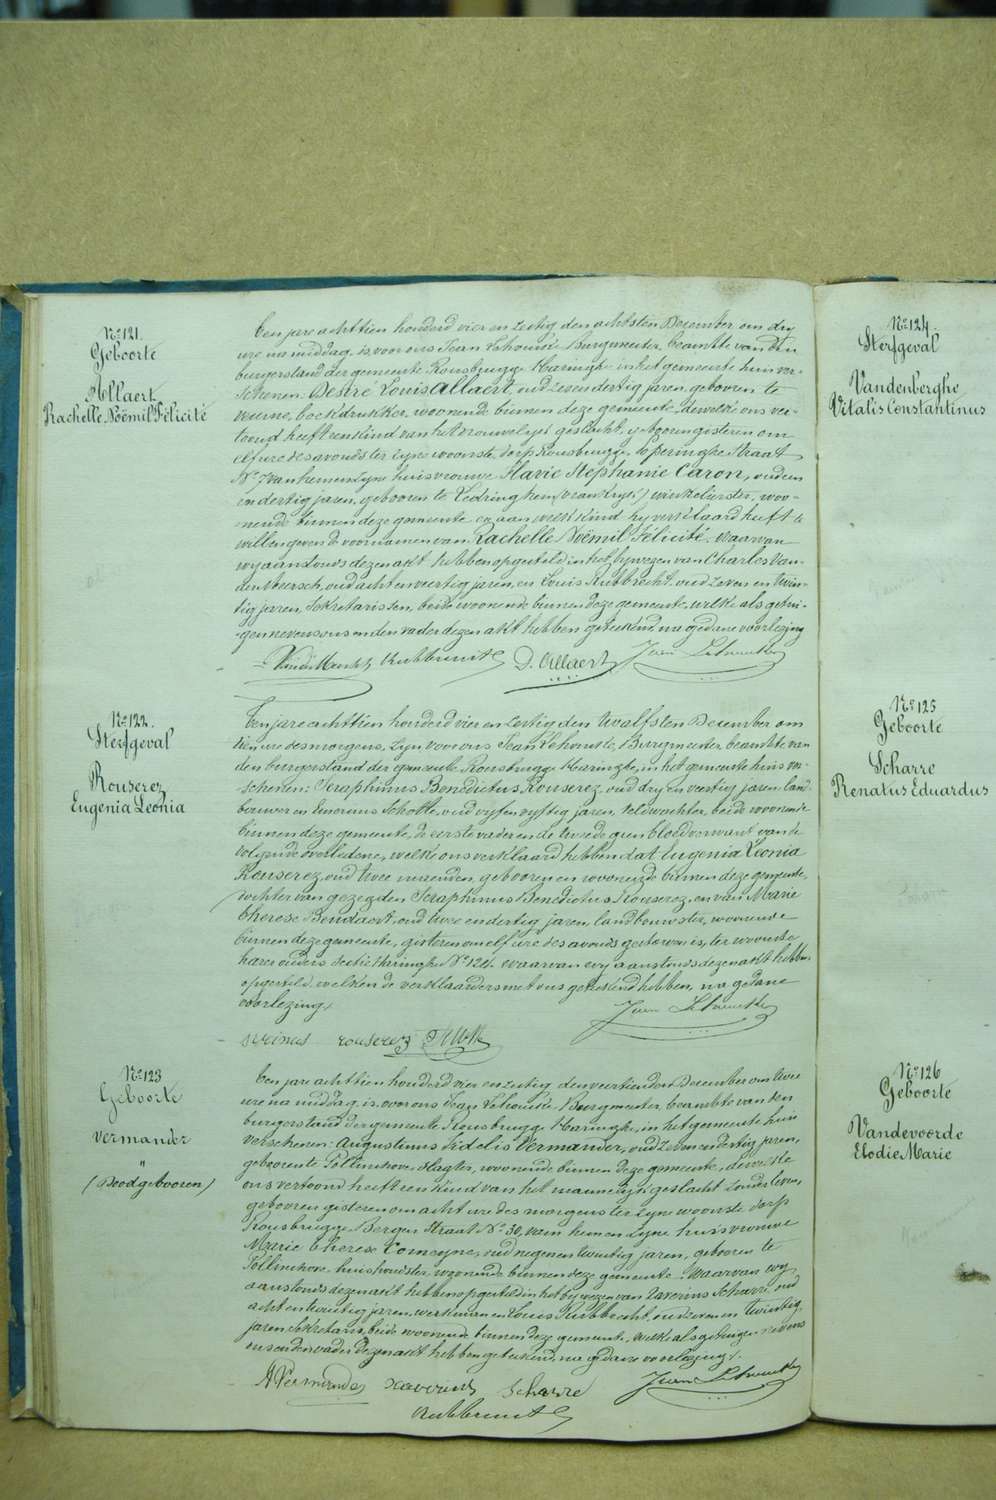 No 121.
Geboorte
Allaert
Rachelle Noëmil Félicité
Ten jare achttien honderd vier en zestig den achtsten December om dry
ure na middag, is voor ons Jean Lehoucke Burgmeester, beamte van den
burgerstand der gemeente Rousbrugge Haringhe in het gemeente huis ver-
schenen Desiré Louis Allaert, oud zes en dertig jaren, gebooren te
veurne, boekdrukker, woonende binnen deze gemeente, dewelke ons ver-
toond heeft een kind van het vrouwelyk geslacht, gebooren gisteren om
elf ure des avonds ter zyne woonste dorp Rousbrugge, Poperinghe straat
No 7 van hem en zyne huisvrouwe Flavie Stephanie Caron, oud een
en dertig jaren, gebooren te Ledringhem (vrankryk) winkelierster, woo-
nende binnen deze gemeente en aan welk kind hy verklaard heeft te
willen geven de voornamen van Rachelle Noëmil Félicité. waarvan
wy aanstonds dezen akt hebben opgesteld in het bywezen van Charles Van-
denberch, oud acht en veertig jaren, en Louis Rubbrecht, oud zeven en twin-
tig jaren, Sekretarissen, beide woonende binnen deze gemeente, welke als getui-
gen nevens ons en den vader dezen akt hebben geteekend, na gedane voorlezing
D. Allaert Jean Lehoucke
No 122.
Sterfgeval
Rouserez
Eugenia Leonia
Ten jare achttien honderd vier en zestig den twalfsten December om
tien ure des morgens, zyn voor ons Jean Lehoucke, Burgmeester, beamte van
den burgerstand der gemeente Rousbrugge Haringhe, in het gemeente huis ver-
schenen: Seraphinus Benedictus Rouserez, oud dry en veertig jaren, land-
bouwer en Schotte, oud vyf en vyftig jaren, veldwachter, beide woonende
binnen deze gemeente, de eerste vader en de tweede geen bloedverwant van de
volgende overledene, welke ons verklaard hebben dat Eugenia Leonia
Rouserez, oud twee maenden, gebooren en woonende binnen deze gemeente,
dochter van gezegden Seraphinus Benedictus Rouserez, en van Marie
Therese Beudaert, oud twee en dertig jaren, landbouwster, woonende
binnen deze gemeente, gisteren om elf ure des avonds gestorven is, ter woonste
harer ouders sectie Haringhe No 124. waarvan wy aanstonds dezen akt hebben
opgesteld, welken de verklaarders met ons geteekend hebben, na gedane
voorlezing,
Jean Lehoucke
rouserez
No 123
Geboorte
vermander
"
(Doodgebooren)
Ten jare achttien honderd vier en zestig den veertienden December om twee
ure na middag, is voor ons Jean Lehoucke Burgmeester, beambte van den
burgerstand der gemeente Rousbrugge Haringhe, in het gemeente huis
verschenen: Augustinus Fidelis Vermander, oud zeven en dertig jaren,
gebooren te Pollinchove, slagter, woonende binnen deze gemeente, dewelke
ons vertoond heeft een kind van het mannelyk geslacht zonder leven,
gebooren gisteren om acht ure des morgens ter zyne woonste dorp
Rousbrugge Bergen straat No 30, van hem en zyne huisvrouwe
Marie Therese Comeyne, oud negen en twintig jaren, gebooren te
Pollinchove, huishoudster, woonende binnen deze gemeente. Waarvan wy
aanstonds dezen akt hebben opgesteld in het bywezen van Xaverius Scharre, oud
acht en twintig jaren, werkman en Louis Rubbrecht, oud zeven en twintig
jaren, Sekretaris, beide woonende binnen deze gemeente, welke als getuigen nevens
ons en den vader dezen akt hebben geteekend, na gedane voorlezing.
A Vermander xaverius Scharre Jean Lehoucke
No 124.
Sterfgeval
Vandenberghe
Vitalis Constantinus
No 125
Geboorte
Scharre
Renatus Eduardus
No 126
Geboorte
Vandevoorde
Elodie Marie